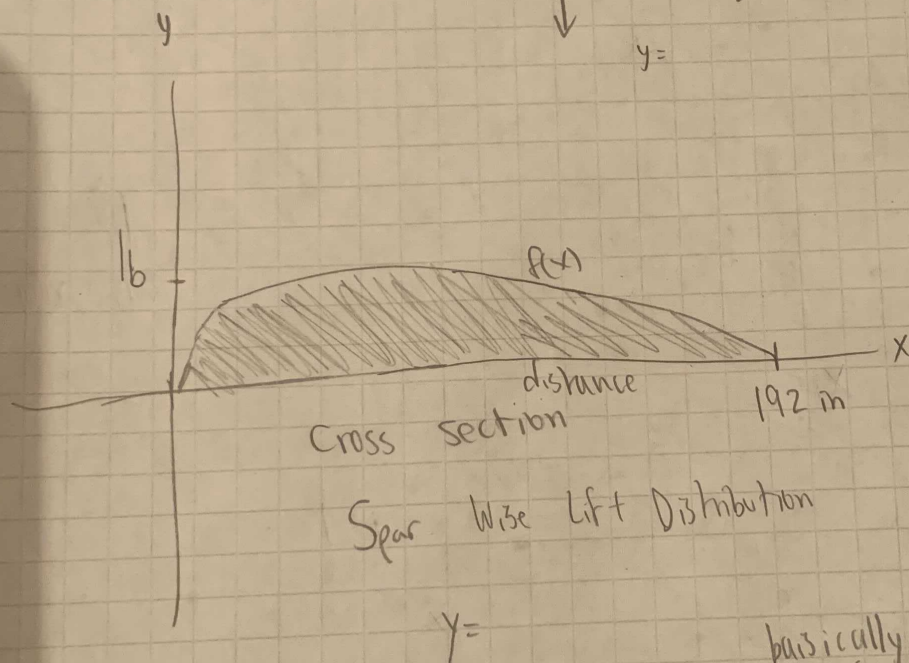 y
y=
lb
f(x)
x
distance
192 in
Cross section
Spar Wise Lift Distribution
y=
baisically